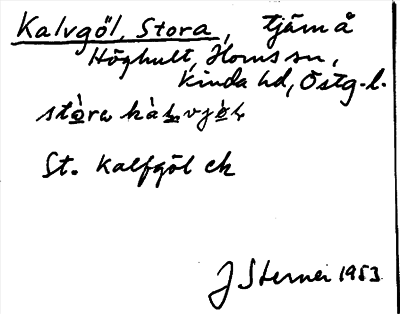 Kalvgöl, Stora, tjärn å
Höghult, Horns sn,
Kinda hd, Östg. l.
St. Kalfgöl ek
J Sterner 1953